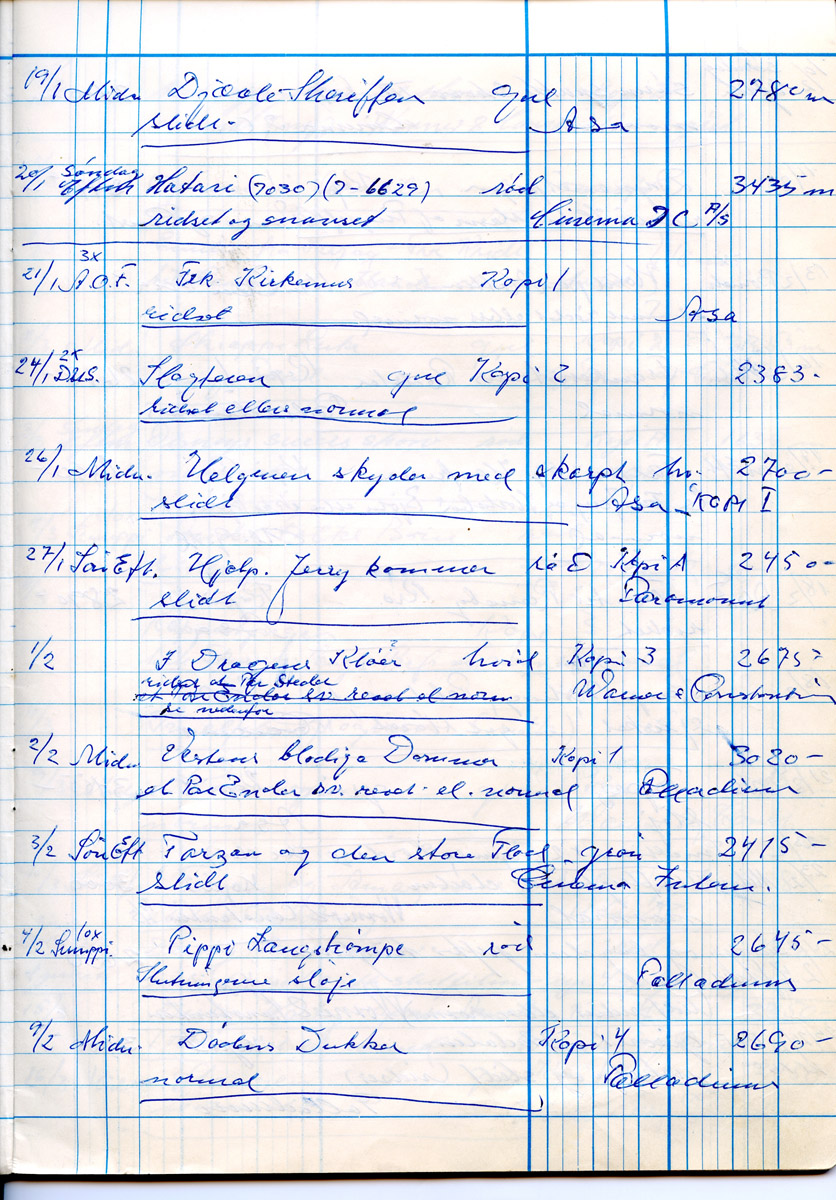 19/1 Midn. Djævle-Sheriffen gul 2780 m
slidt. Asa
20/1 Søndag Hatari (7030) (7-6629) rød 3435 m
ridset og snavset Cinema D C A/S
3x
21/1 A.O.F. Frk. Kirkemus Kopi 1
ridset Asa
2x
24/1 gul Kopi 2 2383-
ridset ellers normal
26/1 Midn. Helgenen skyder med skarpt hv. 2700-
slidt Asa - KOPI I
27/1 Søn Eft. Hjælp. Jerry kommer rød Kopi A 2450-
slidt Paramount
1/2 I Dragens Kløer hvid Kopi 3 2675-
ridset et Par Steder
et Par Ender sv. revet el norm Warner & Constantin
se nedenfor
2/2 Midn. Vestens blodige Dommer Kopi 1 3020-
et Par Ender sv. revet. el. normal Palladium
3/2 Søn Eft Tarzan og den store Flod grøn 2415-
slidt Cinema Intern.
10x
4/2 Pippi Langstrømpe rød 2645-
sløje Palladium
9/2 Midn. Dødens Dukker Kopi 4 2690-
normal Palladium